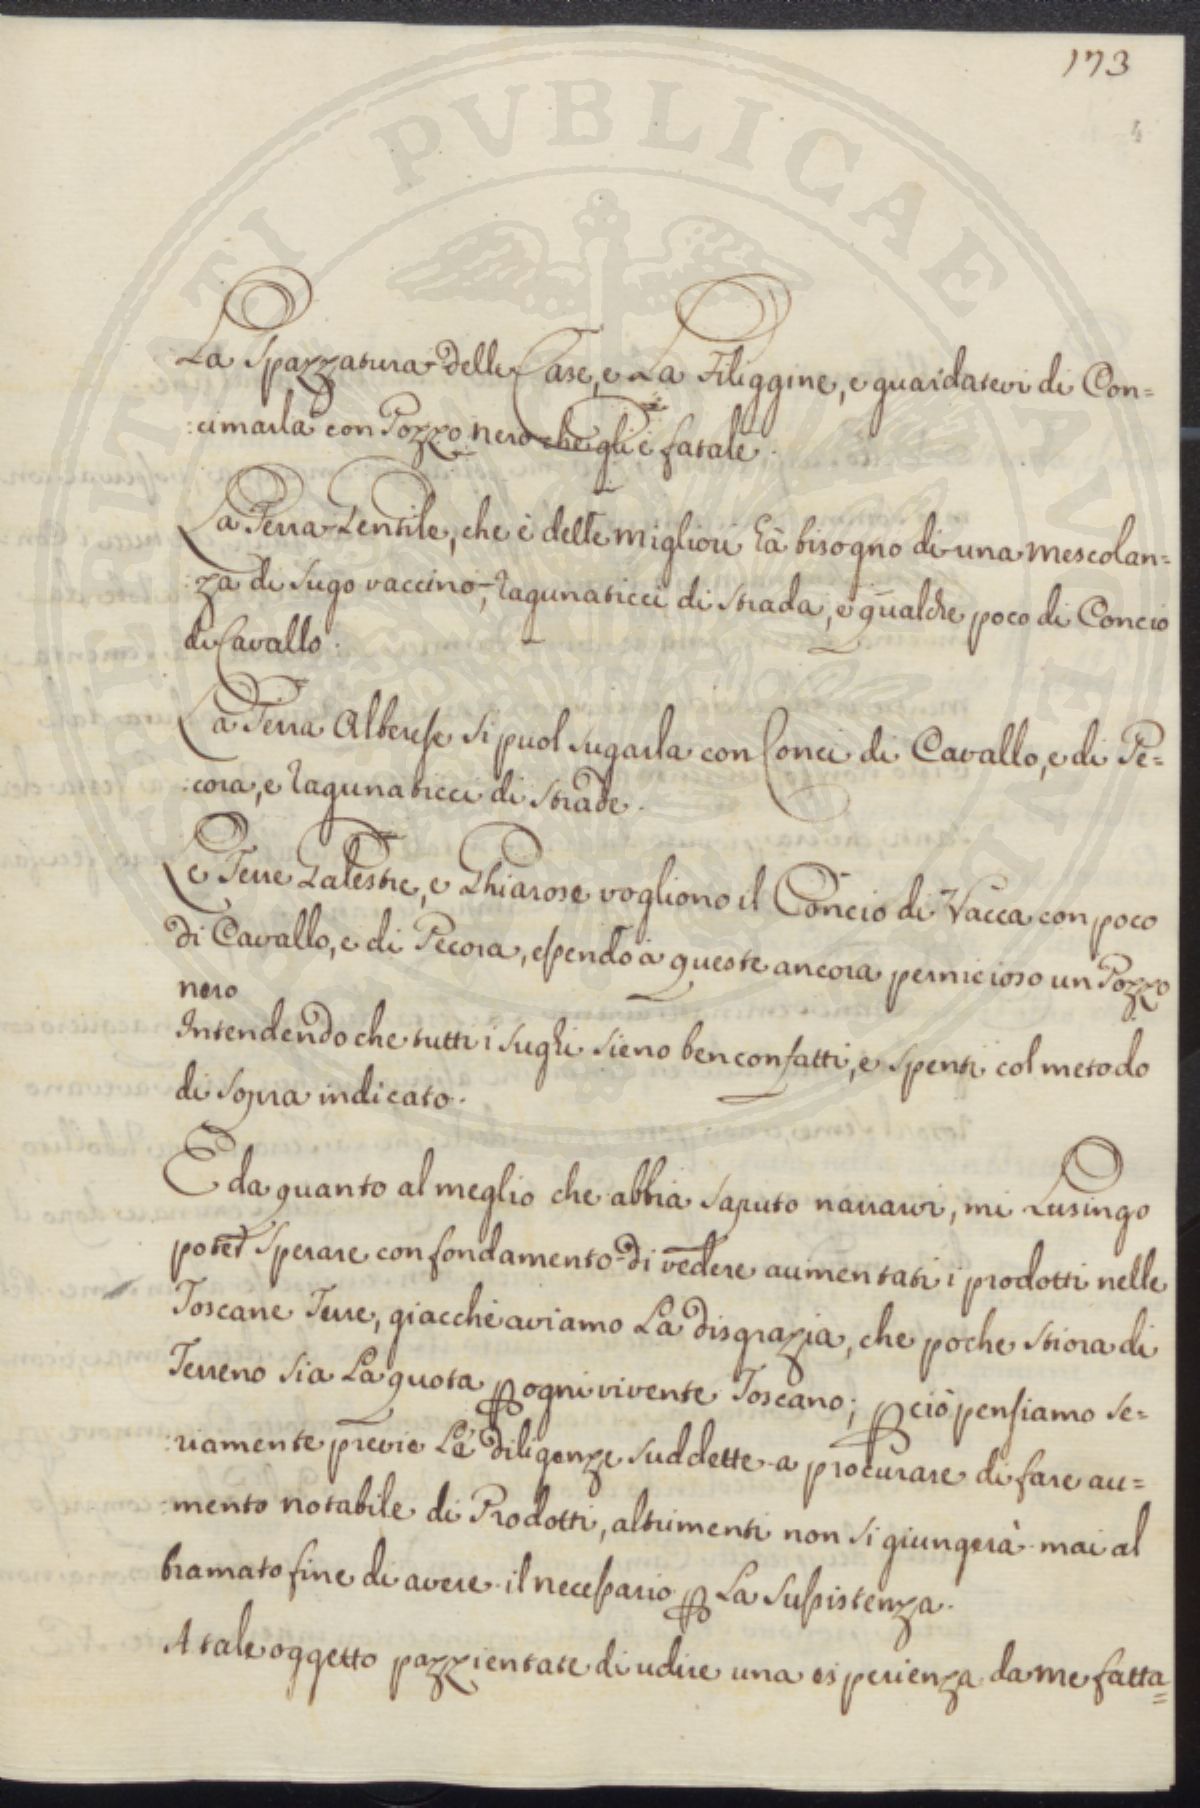 173
4
La Spazzatura delle Case, e La Filiggine, e guardatevi di Con=
:cimarla con Pozzo nero che gli è fatale.
La Terra Gentile, che è delle migliori hà bisogno di una mescolan=
:za di Sugo vaccino, ragunaticci di Strada, e qualche poco di Concio
di Cavallo.
La Terra Alberese si puol sugarla con Conci di Cavallo, e di Pe=
:cora, e ragunaticci di Strade.
Le Terre Galestre, e Ghiarose vogliono il Concio di Vacca con poco
di Cavallo, e di Pecora, essendo a queste ancora pernicioso un Pozzo
nero
Intendendo che tutti i Sughi sieno ben confatti, e spenti col metodo
di sopra indicato.
E da quanto al meglio che abbia saputo narrarvi, mi Lusingo
poter sperare con fondamento di vedere aumentati i prodotti nelle
Toscane Terre, giacchè aviamo La disgrazia, che poche Stiora di
Terreno sia La quota ꝑ ogni vivente Toscano; ꝑciò pensiamo se=
:riamente previe Le diligenze suddette a procurare di fare au=
:mento notabile di Prodotti, altrimenti non si giungerà mai al
bramato fine di avere il necessario ꝑ La Sussistenza.
A tale oggetto pazzientate di udire una esperienza da me fatta=
PVBLICAE